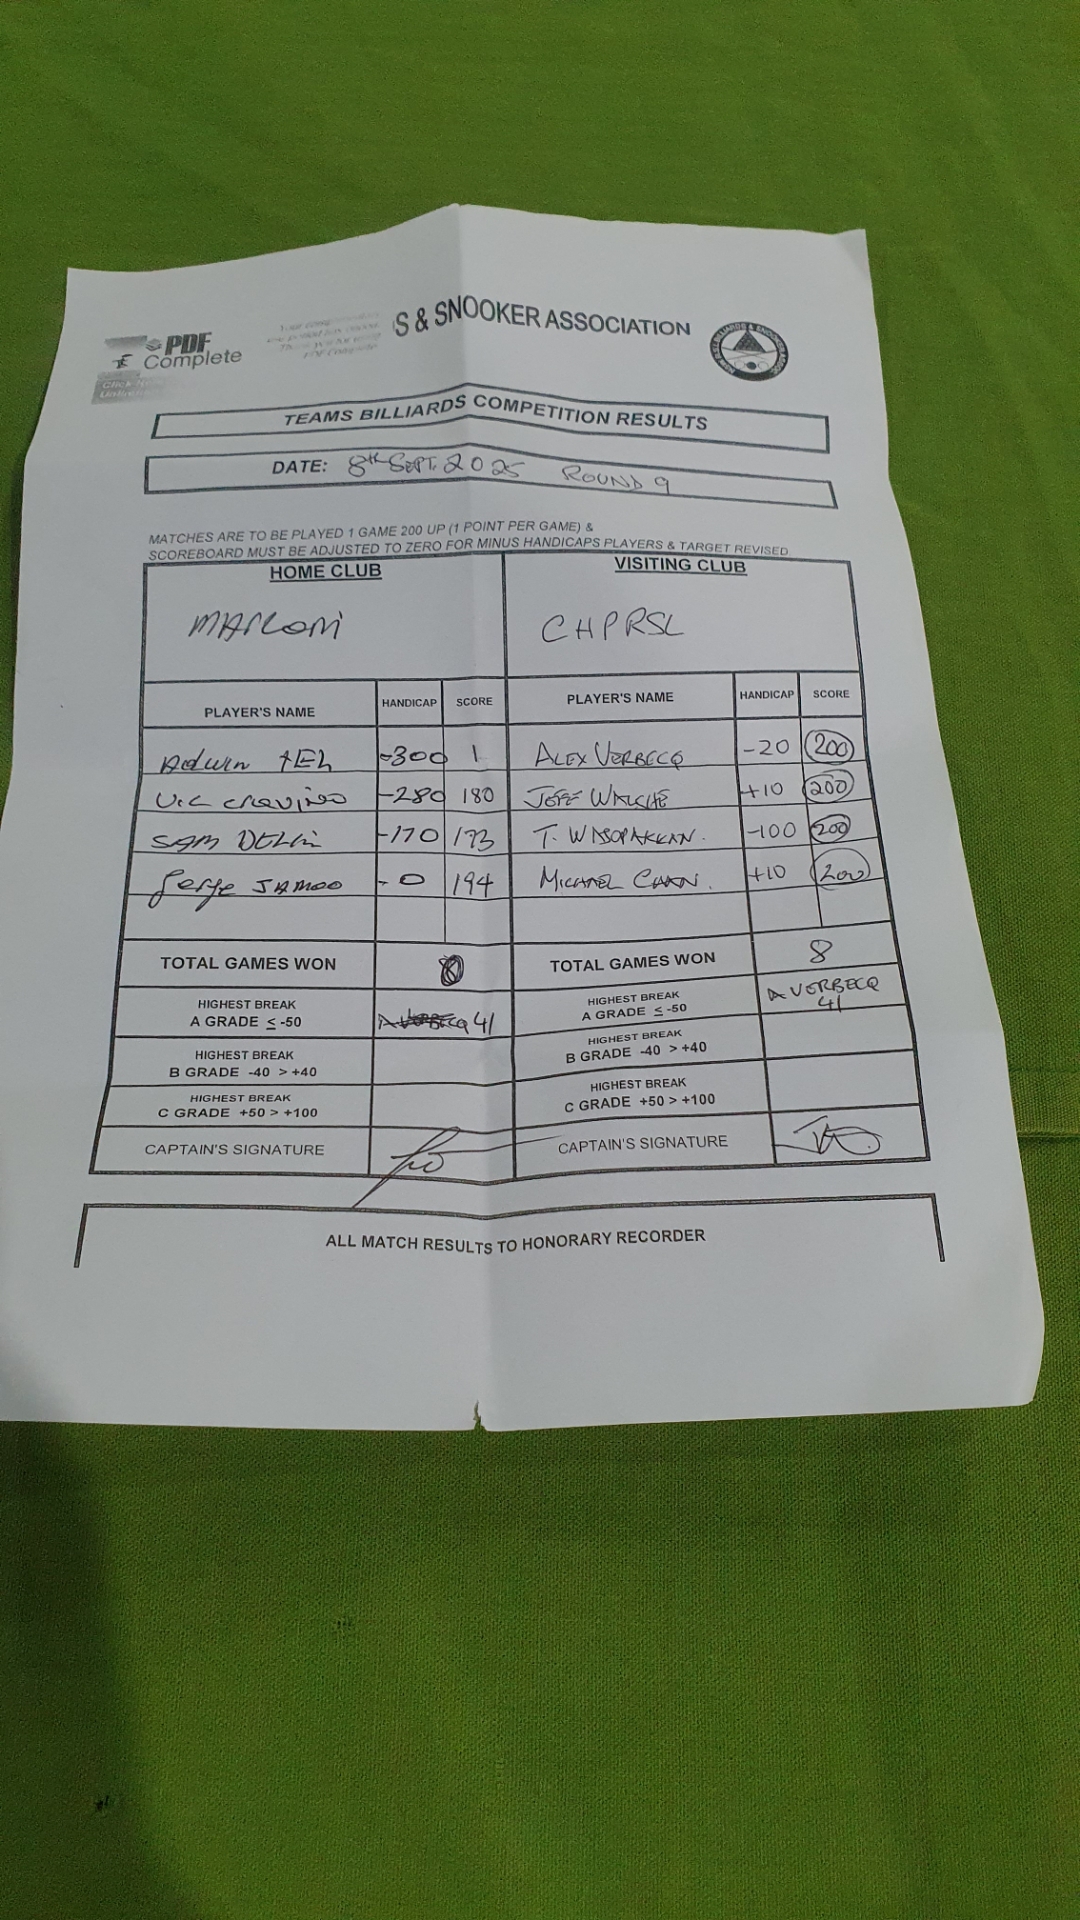 PDF
Complete
S & SNOOKER ASSOCIATION
TEAMS BILLIARDS COMPETITION RESULTS
DATE: 8th SEPT. 2025 ROUND 9
MATCHES ARE TO BE PLAYED 1 GAME 200 UP (1 POINT PER GAME) &
SCOREBOARD MUST BE ADJUSTED TO ZERO FOR MINUS HANDICAPS PLAYERS & TARGET REVISED
HOME CLUB VISITING CLUB
MARCONI CHPRSL
PLAYER'S NAME HANDICAP SCORE PLAYER'S NAME HANDICAP SCORE
-300 1 ALEX VERBECQ -20 200
-280 180 +10 200
SAM -170 173 T. -100 200
JAMOO -0 194 MICHAEL CHAN. +10 200
TOTAL GAMES WON TOTAL GAMES WON 8
HIGHEST BREAK
A GRADE ≤ -50 A VERBECQ 41
HIGHEST BREAK
A GRADE ≤ -50 A VERBECQ
41
HIGHEST BREAK
B GRADE -40 > +40
HIGHEST BREAK
B GRADE -40 > +40
HIGHEST BREAK
C GRADE +50 > +100
HIGHEST BREAK
C GRADE +50 > +100
CAPTAIN'S SIGNATURE CAPTAIN'S SIGNATURE
ALL MATCH RESULTS TO HONORARY RECORDER